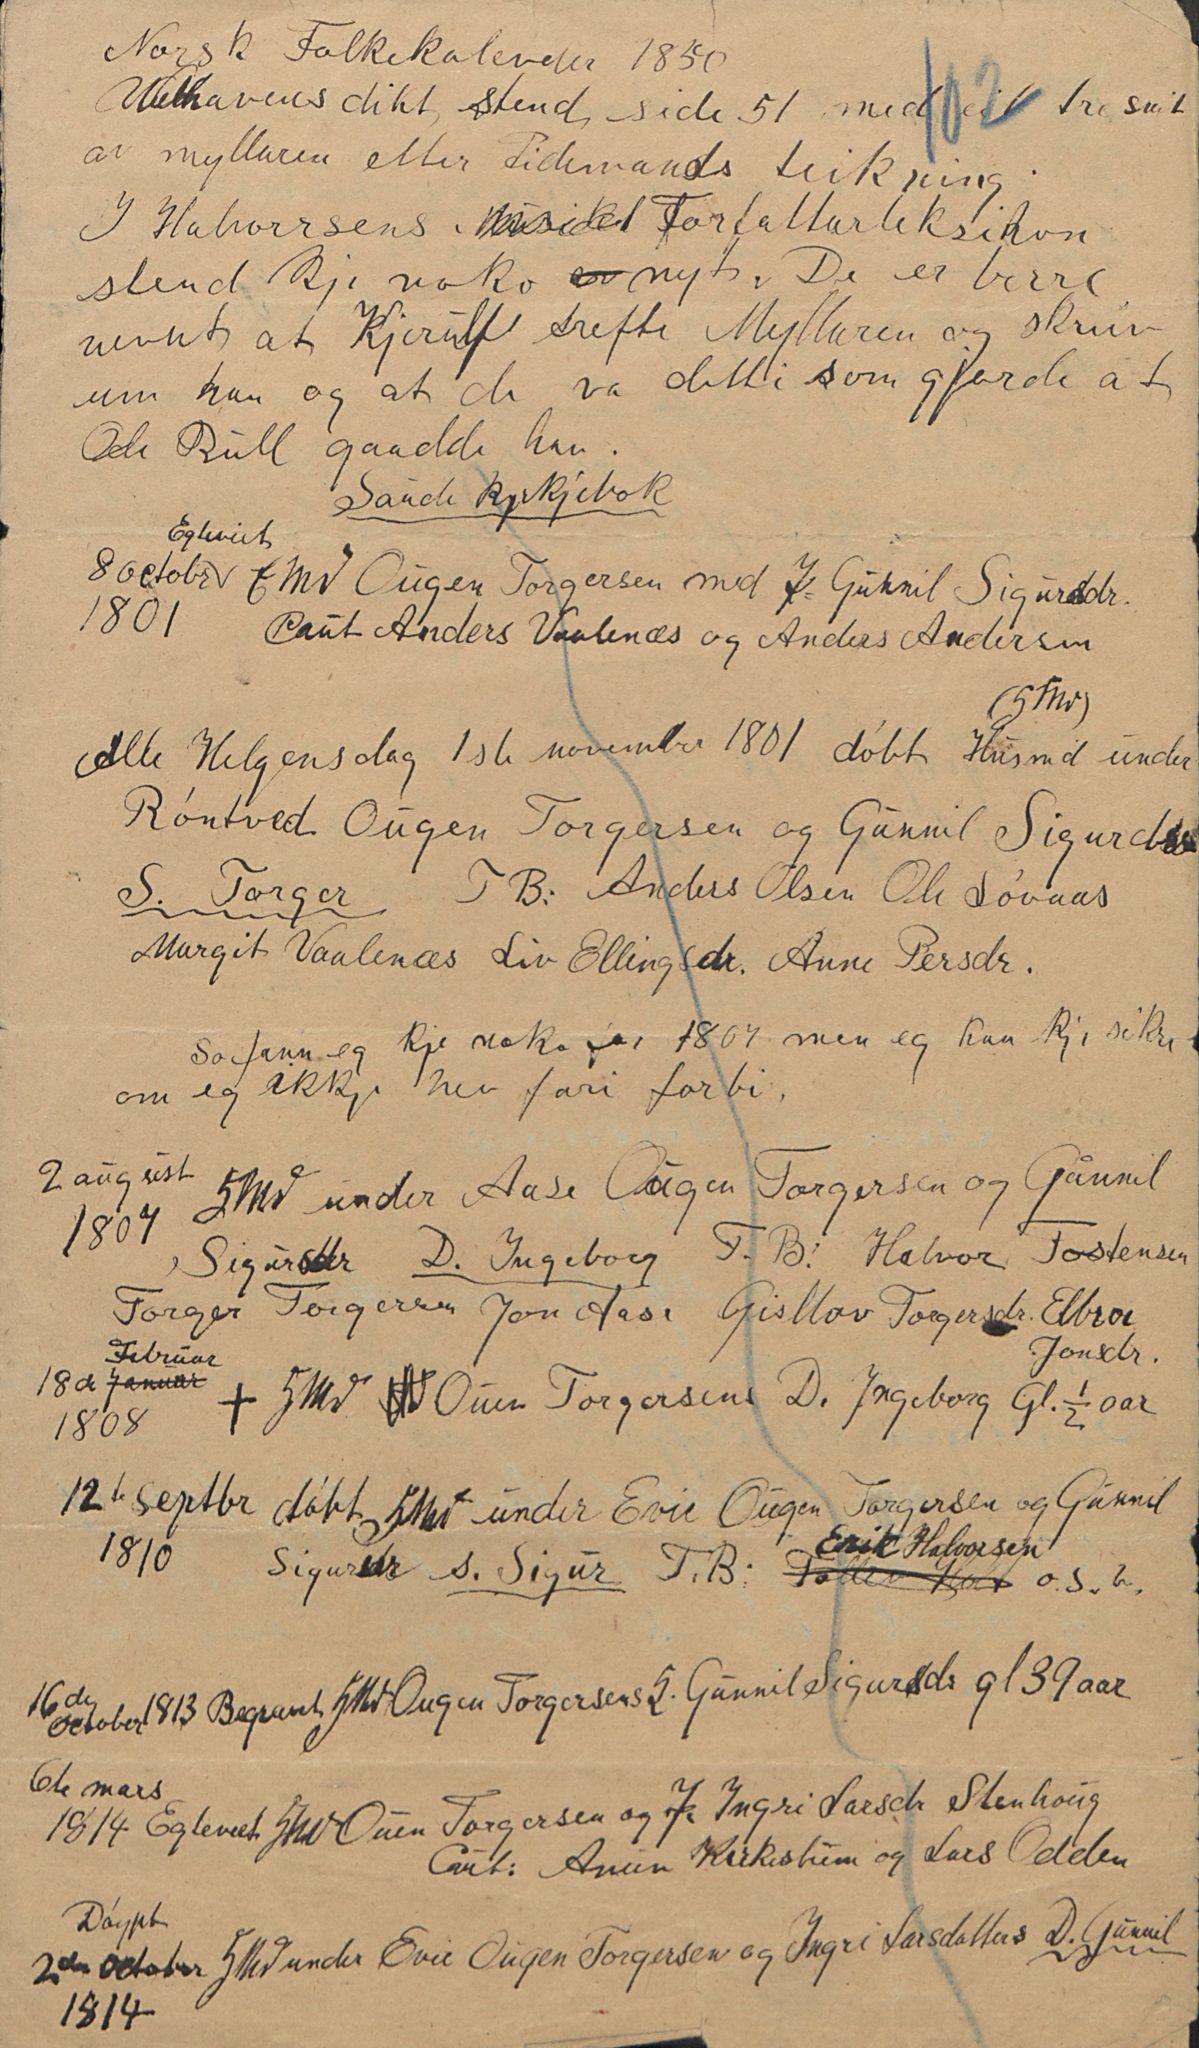 Norsk Folkekalender 1850
102
Welhavens dikt stend side 51 med eit tresnit
av myllaren etter Tidemands teikning.
I Halvorsens Forfattarleksikon
stend kje noko nyt. De er berre
nevnt at Kjerulf trefte Myllaren og skreiv
um han og at de va detti som gjorde at
Ole Bull gaadde han.
Saude kyrkjebok
Egteviet
8 october HMd Ougen Torgersen med P. Gunnil Sigursdr.
1801 Caut Anders Vaalenæs og Anders Andersen
(HMd)
Alle Helgensdag 1ste november 1801 döbt Husmd under
Röntved Ougen Torgersen og Gunnil Sigurds
S. Torger T B: Anders Olsen Ole Lövaas
Margit Vaalenæs Liv Ellingsdr. Anne Persdr.
So fann eg kje noko för 1807 men eg kan kje sikre
om eg ikkje hev fari forbi.
2 august HMd under Aase Ougen Torgersen og Gunnil
1807 Sigursdr D. Ingeborg T. B: Halvor Tostensen
Torger Torgersen Jon Aase Gisllov Torgersdr. Elbror
Jonsdr.
Februar
18de Januar + HMd Ouen Torgersens D. Ingeborg Gl. ½ aar
1808
12te septbr döbt HMd under Evie Ougen Torgersen og Gunnil
1810 Sigursdr s. Sigur T.B: Erik Halvorsen o.s.v.
16de october 1813 Begravet HMd Ougen Torgersens H. Gunnil Sigursdr gl 39 aar
6te mars
1814 Egteviet HMd Ouen Torgersen og P. Ingri Larsdr Stenhoug
Caut: Amun Kirkestuen og Lars Odden
Döypt
2den october HMd under Evie Ougen Torgersen og Ingri Larsdatters D. Gunnil
1814